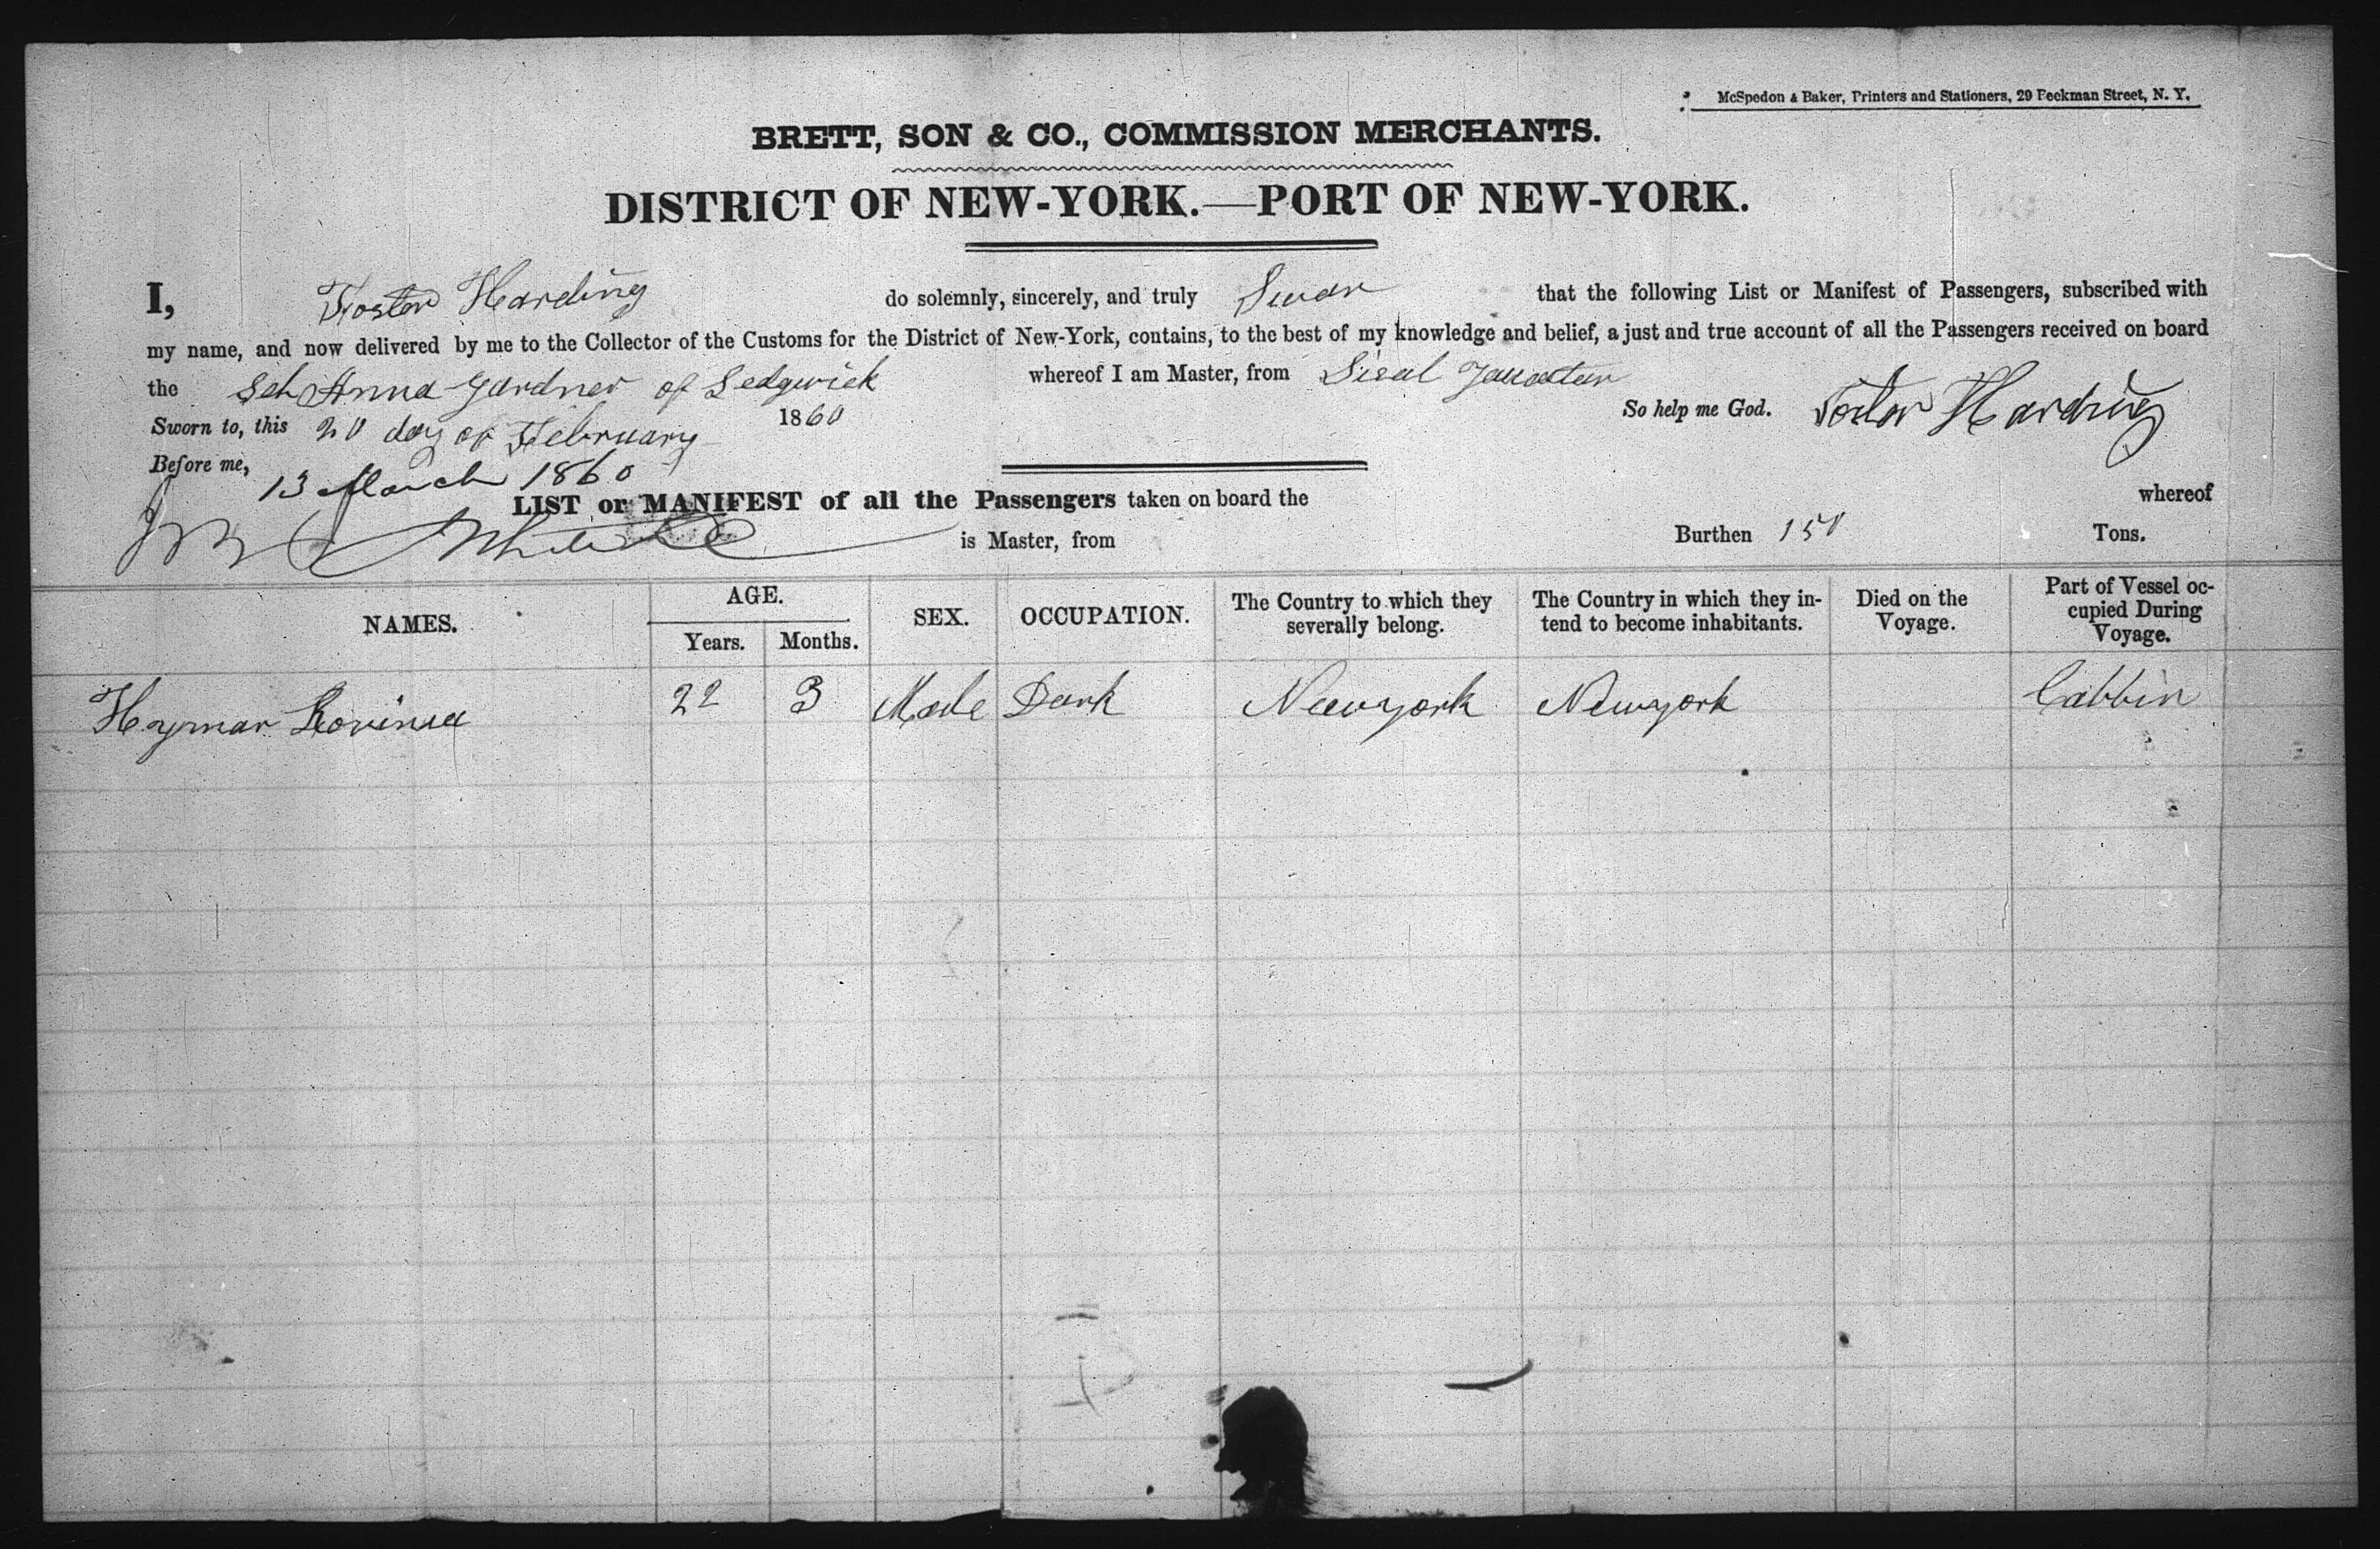 McSpedon & Baker, Printers and Stationers, 29 Beekman Street, N. Y.
BRETT, SON & CO., COMMISSION MERCHANTS.
DISTRICT OF NEW-YORK.—PORT OF NEW-YORK.
I, Foster Harding do solemnly, sincerely, and truly Swear that the following List or Manifest of Passengers, subscribed with
my name, and now delivered by me to the Collector of the Customs for the District of New-York, contains, to the best of my knowledge and belief, a just and true account of all the Passengers received on board
the Sch Anna Gardner of Sedgwick whereof I am Master, from Sisal
So help me God. Foster Harding
Sworn to, this 20 day of February 1860
Before me, 13 March 1860
LIST or MANIFEST of all the Passengers taken on board the whereof
is Master, from Burthen 150 Tons.
NAMES. AGE. SEX. OCCUPATION. The Country to which they severally belong. The Country in which they intend to become inhabitants. Died on the Voyage. Part of Vessel occupied During Voyage.
Years. Months.
Heymar 22 3 Male Newyork Newyork Cabbin